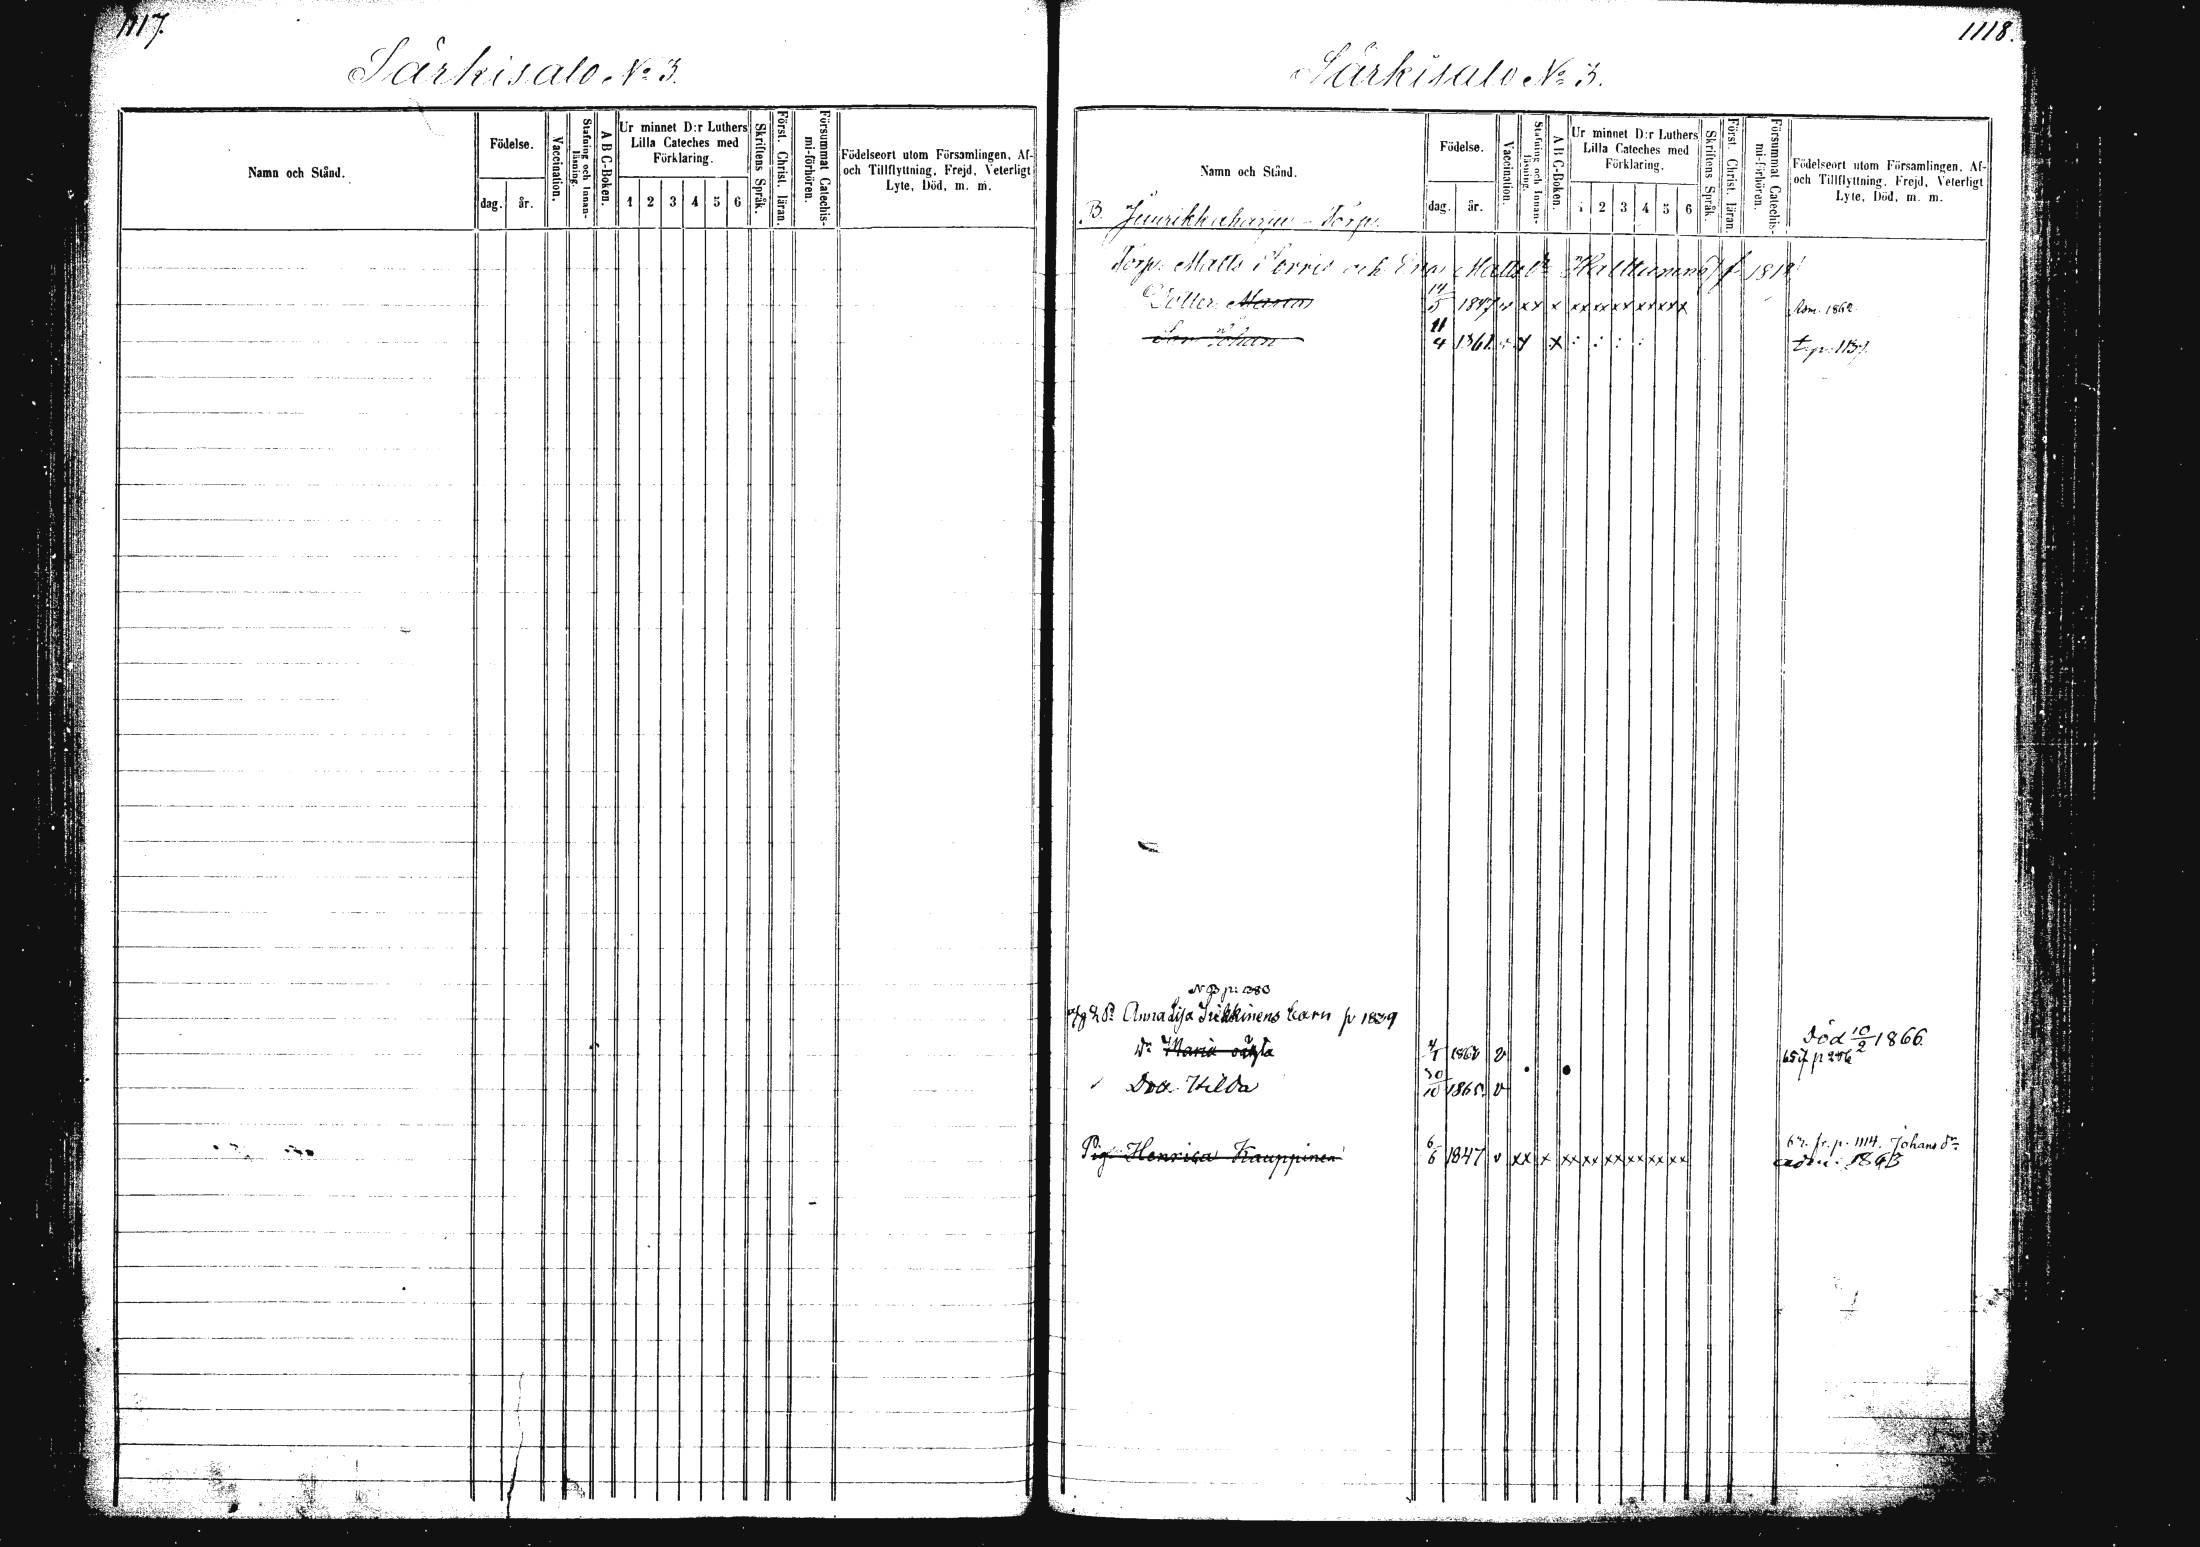 1117.
Särkisalo No 3.
Namn och Stånd.
Födelse.
dag. år.
Vaccination.
Stafning och Innan-läsning.
A B C-Boken.
Ur minnet D:r Luthers Lilla Cateches med Förklaring.
1 2 3 4 5 6
Skriftens Språk.
Först. Christ. läran.
Försummat Catechis-mi-förhören.
Födelseort utom Församlingen, Af- och Tillflyttning, Frejd, Veterligt Lyte, Död, m. m.
1118.
Särkisalo No 3.
Namn och Stånd.
Födelse.
dag. år.
Vaccination.
Stafning och Innan-läsning.
A B C-Boken.
Ur minnet D:r Luthers Lilla Cateches med Förklaring.
1 2 3 4 5 6
Skriftens Språk.
Först. Christ. läran.
Försummat Catechis-mi-förhören.
Födelseort utom Församlingen, Af- och Tillflyttning, Frejd, Veterligt Lyte, Död, m. m.
B. Torp.
Torp. Matts och Matts
Dotter 14/5 1847 v xx x xx xx xx xx xx xx Adm. 1862
Son Johan 11/4 1861 x x : : : : t. p. 1137.
Anna Lisa barn p 1839
Dr Maria 1860 v Död 10/2 1866
Dr. Hilda 30/10 1865 v
Pig. Henrica Kauppinen 6/6 1847 v xx x xx xx xx xx xx xx fr. p. 1114. Johans dr
adm. 1863